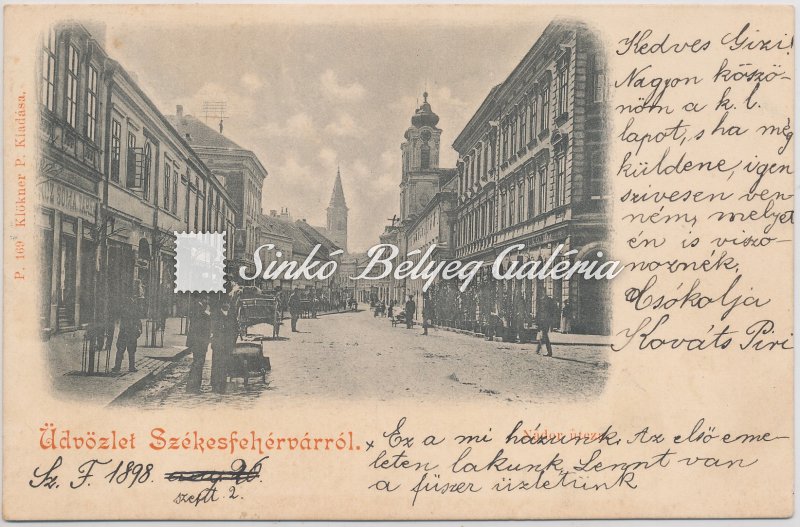 P. 169 Klökner P. Kiadása.
Kedves Gizi!
Nagyon köszö-
nöm a k. l.
lapot, s ha még
küldene, igen
szivesen ven-
ném, melyet
én is viszo-
noznék.
Csókolja
Kováts Piri
Sinkó Bélyeg Galéria
Üdvözlet Székesfehérvárról.
Nádor utcza.
Sz. F. 1898.
szept. 2.
x Ez a mi házunk. Az első eme-
leten lakunk. Lennt van
a füszer üzletünk